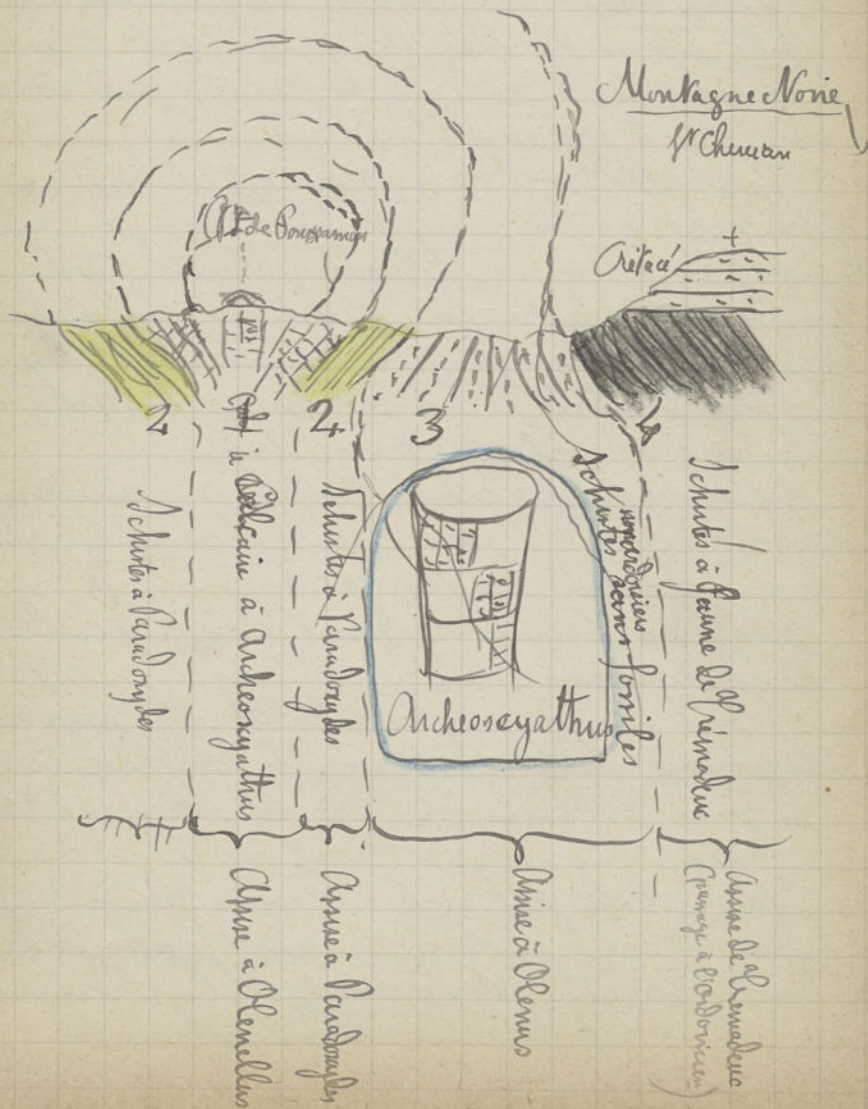 Montagne Noire
St Chinian
de
Crétacé
+
2
2
3
Schistes à Paradoxydes
Calcaire à Archeocyathus
Schistes à Paradoxydes
Archeoscyathus
Schistes
ardoisiers
sans fossiles
Schistes à faune de Trémadoc
Assise à Olenellus
Assise à Paradoxydes
Assise à Olenus
Assise de Tremadoc
(passage à l'ordovicien)